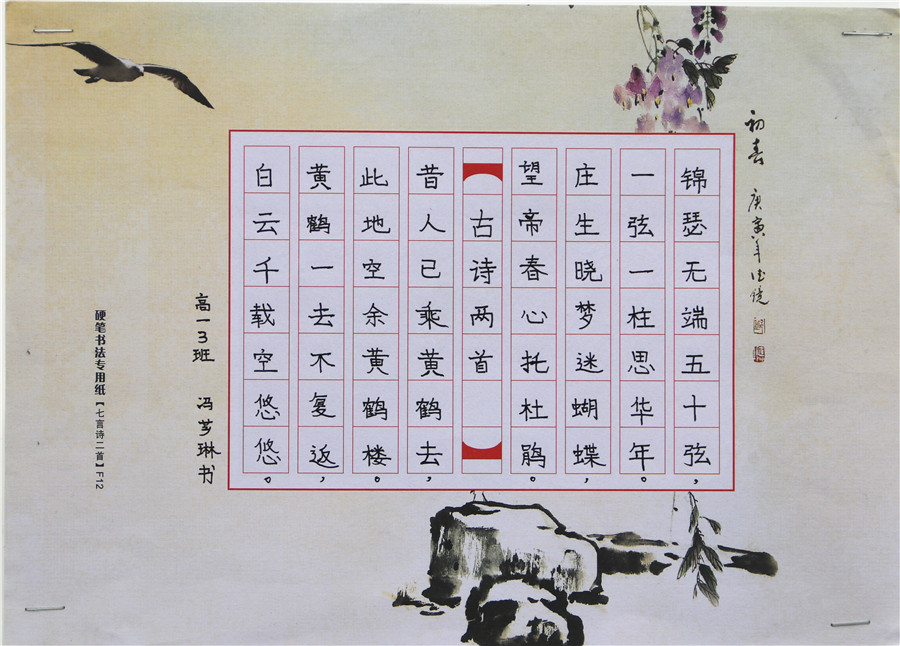 锦瑟无端五十弦，
一弦一柱思华年。
庄生晓梦迷蝴蝶，
望帝春心托杜鹃。
古诗两首
昔人已乘黄鹤去，
此地空余黄鹤楼。
黄鹤一去不复返，
白云千载空悠悠。
高一3班 冯梦琳书
硬笔书法专用纸【七言诗二首】F12
初春 庚寅年